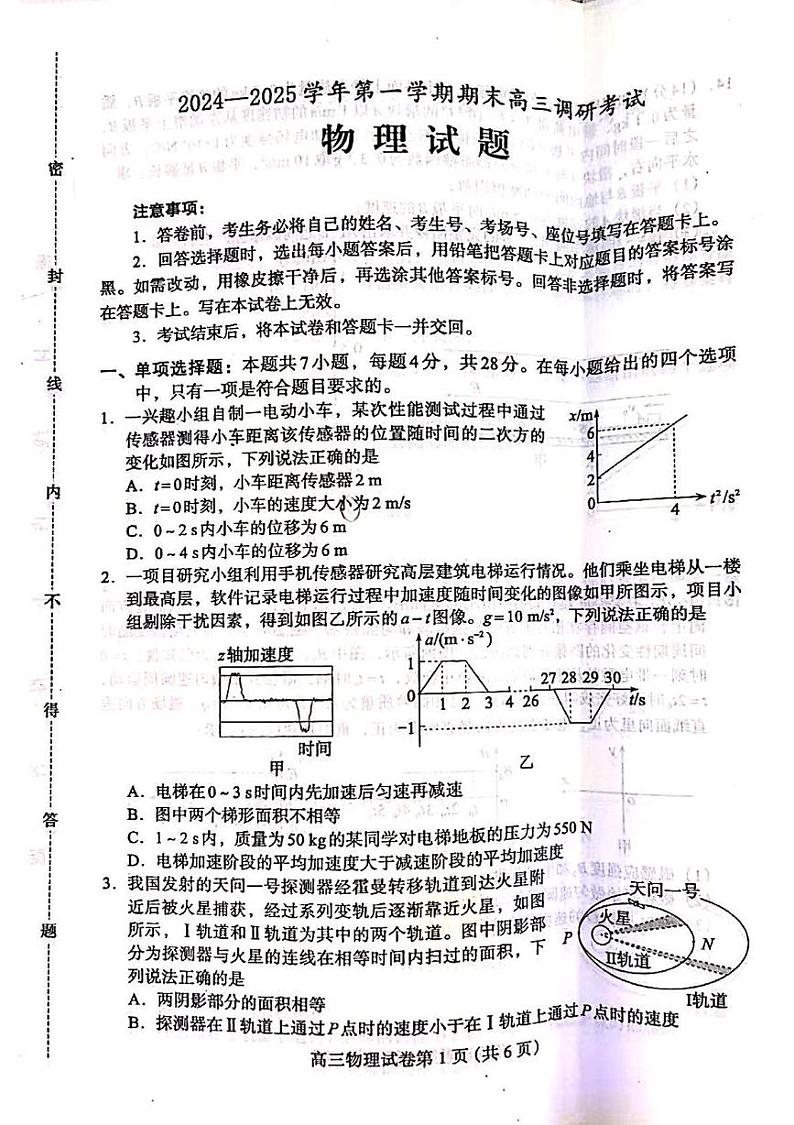 2024—2025学年第一学期期末高三调研考试
物理试题
注意事项：
1．答卷前，考生务必将自己的姓名、考生号、考场号、座位号填写在答题卡上。
2．回答选择题时，选出每小题答案后，用铅笔把答题卡上对应题目的答案标号涂
黑。如需改动，用橡皮擦干净后，再选涂其他答案标号。回答非选择题时，将答案写
在答题卡上。写在本试卷上无效。
3．考试结束后，将本试卷和答题卡一并交回。
一、单项选择题：本题共7小题，每题4分，共28分。在每小题给出的四个选项
中，只有一项是符合题目要求的。
1．一兴趣小组自制一电动小车，某次性能测试过程中通过
传感器测得小车距离该传感器的位置随时间的二次方的
变化如图所示，下列说法正确的是
A．t=0时刻，小车距离传感器2 m
B．t=0时刻，小车的速度大小为2 m/s
C．0~2 s内小车的位移为6 m
D．0~4 s内小车的位移为6 m
x/m
6
4
2
0
4
t²/s²
2．一项目研究小组利用手机传感器研究高层建筑电梯运行情况。他们乘坐电梯从一楼
到最高层，软件记录电梯运行过程中加速度随时间变化的图像如甲所图示，项目小
组剔除干扰因素，得到如图乙所示的a-t图像。g=10 m/s²，下列说法正确的是
z轴加速度
时间
甲
a/(m·s⁻²)
1
0
-1
1 2 3 4 26
27 28 29 30
t/s
乙
A．电梯在0~3 s时间内先加速后匀速再减速
B．图中两个梯形面积不相等
C．1~2 s内，质量为50 kg的某同学对电梯地板的压力为550 N
D．电梯加速阶段的平均加速度大于减速阶段的平均加速度
3．我国发射的天问一号探测器经霍曼转移轨道到达火星附
近后被火星捕获，经过系列变轨后逐渐靠近火星，如图
所示，Ⅰ轨道和Ⅱ轨道为其中的两个轨道。图中阴影部
分为探测器与火星的连线在相等时间内扫过的面积，下
列说法正确的是
天问一号
火星
P
N
Ⅱ轨道
Ⅰ轨道
A．两阴影部分的面积相等
B．探测器在Ⅱ轨道上通过P点时的速度小于在Ⅰ轨道上通过P点时的速度
高三物理试卷第1页（共6页）
密
封
线
内
不
得
答
题